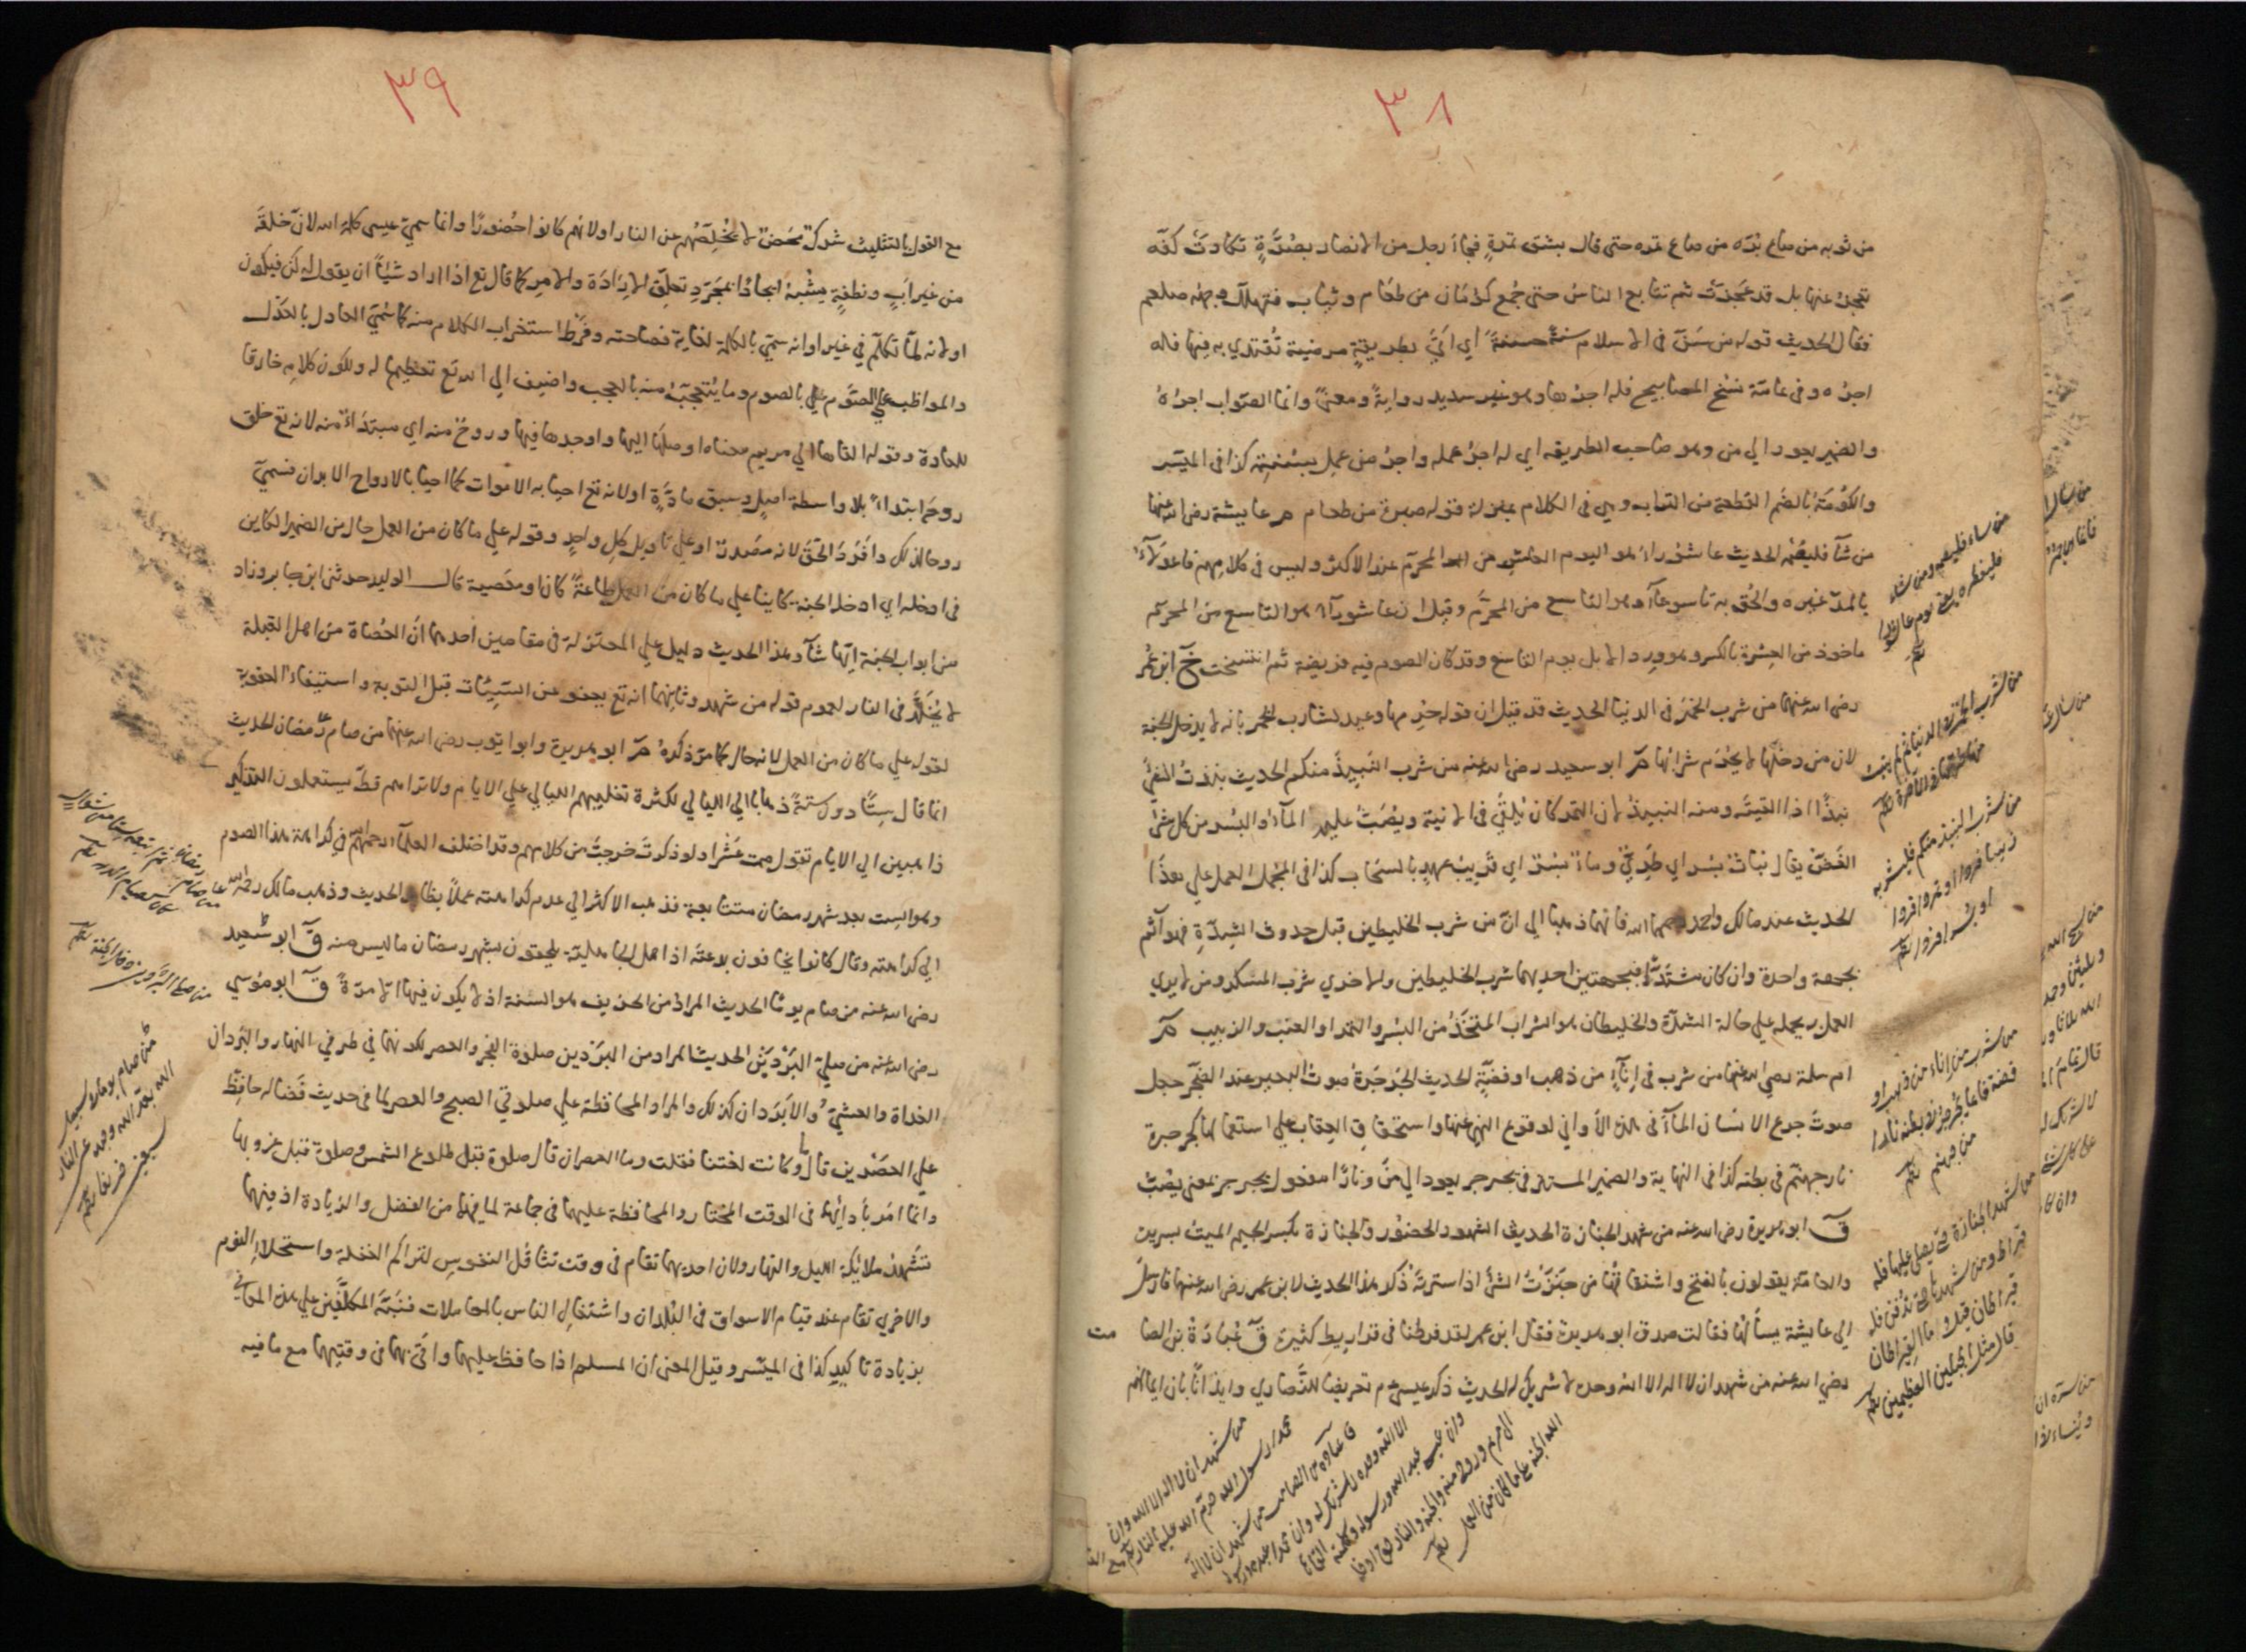 ٣٨
من ثوبه من صاع بُرّه من صاع تمره حتى قال بشق تمرةٍ فجاء رجل من الانصار بصُرَّةٍ تكادت كفّه
تعجز عنها بل قد عجزت ثم تتابع الناس حتى جُمع كَوْمَان من طعام وثياب فتهلل وجهه صلعم
فقال الحديث قوله من سَنّ في الاسلام سنةً حسنةً اي اتى بطريقةٍ مرضية تُقتدي به فيها فله
اجره وفي عامّة نسخ المصابيح فله اجرها وهو غير سديد روايةً ومعنىً وانما الصّواب اجره
والضمير يعود الي من وهو صاحب الطريقه اي له اجر عمله واجر من عمل بسُنّتِه كذا في الميّسر
والكَوْمَةُ بالضم القطعة من التراب وهي في الكلام بمنزلة قوله صبرة من طعام م عايشة رض الله عنها
من شآ فليصُمْه الحديث عاشوراءُ هو اليوم العاشر من المحرّم عند الاكثر وليس في كلامهم فاعولآءُ
بالمدّ غيره والحُق به تاسوعآء وهو التاسع من المحرَّم وقيل ان عاشورآء هو التاسع من المحرّم
ماخوذ من العِشْرة بالكسر وهو ورد الابل يوم التاسع وقد كان الصوم فيه فريضة ثم انتسخت خ ابن عُمر
رض الله عنهما من شرب الخمْر في الدنيا الحديث قد قيل ان قوله حُرِمها وعيد لشارب الخمر بانه لا يدخل الجنة
لان من دخلها لا يُحْرَم شرابُها م ابو سعيد رض الله عنه من شرب النبيذ منكم الحديث نبذتُ الشئ
نبذًا اذا القيتَه ومنه النبيذُ لان التمر كان يُلقى في الآنية ويُصَبُّ عليه المآءُ والبُسْر من كل شئ
الغَضّ يقال نبات بسر اي طَرِيّ وماءٌ بسْر اي قريبُ عهدٍ بالسحاب كذا في المجمل العمل علي هذا
الحديث عند مالك واحمد رحمهما الله فانهما ذهبا الي انّ من شرب الخليطين قبل حدوث الشِدّةِ فهو آثم
بجهة واحدة وان كان مشتدًّا فبجهتين احديهما شرب الخليطين والاخري شرب المسكر ومن لا يري
العمل به يحمله علي حالة الشدّة والخليطان هو الشراب المتخَّذُ من البُسْر والتمر او العنب والزبيب م
ام سلمة رضي الله عنها من شرب في إناءٍ من ذهب او فضّةٍ الحديث الجَرْجَرَةُ صوت البعير عند الضجَر جعل
صوتُ جرع الانسان المآءَ في هذه الأواني لوقوع النهي عنها واستحقاق العِقاب على استعمالها كجرجرة
نار جهنّم في بطنه كذا في النهاية والضمير المستتر في يجرجر يعود الي مَنْ ونارًا مفعول يجرجر بمعنى يصُبّ
ق ابو هريرة رض الله عنه من شهد الجنازة الحديث الشهود الحضور والجنازة بكسر الجيم الميت بسريره
والعامّة يقولون بالفتح واشتقاقُها من جَنَزْتُ الشئ اذا سترتَه ذُكر هذا الحديث لابن عمر رض الله عنهما فارسل
الي عايشة يسألها فقالت صدق ابو هريرة فقال ابن عمر لقد فرطنا في قراريط كثيرة ق عُبادةُ بن الصامت
رضي الله عنه من شهد ان لا اله الا الله وحده لا شريك له الحديث ذكر عيسى عم تعريضًا للنَّصاري وايذانًا بان ايمانهم
من شاء فليصمه ومن شاء
فليفطره يعني يوم عاشوراء
من شرب الخمر في الدنيا ثم لم يتب
منها حرمها في الآخرة
من شرب النبيذ منكم فليشربه
زبيبا فردا او تمرا فردا
او بسرا فردا
من شرب من إناء من ذهب او
فضة فانما يجرجر في بطنه نارا
من جهنم
من شهد الجنازة حتى يصلى عليها فله
قيراط ومن شهدها حتى تدفن فله
قيراطان قيل وما القيراطان
قال مثل الجبلين العظيمين
من شهد ان لا اله الا الله وان
محمدا رسول الله حرم الله عليه النار
ق عبادة بن الصامت من شهد ان لا اله
الا الله وحده لا شريك له وان محمدا عبده ورسوله
وان عيسى عبد الله ورسوله وكلمته القاها
الى مريم وروح منه والجنة والنار حق ادخله
الله الجنة على ما كان من العمل
٣٩
مع القول بالتثليث شرك محض لا يُخْلِصُهم عن النار اولانهم كانوا حُضورًا وانما سميّ عيسى كلمة الله لانّ خلقَه
من غير أبٍ ونطفةٍ يشْبهُ ايجادًا بمجرّدِ تعلّقِ الإرَادَة والامرِ كما قال تع اذا اراد شيئًا ان يقول له كن فيكون
اولانه لمّا تكلّم في غير اوانه سمّي بالكلمة لغاية فصاحته وفَرْطِ استغراب الكلام منه كما سُمّي العادل بالعَدْل
والمواظب على الصّوم بالصوم وما يُتعجّبُ منه بالعجب واضيف الي الله تع تعظيمًا له ولكون كلامه خارقا
للعادة وقوله القاها الي مريم معناه اوصلها اليها واوجدها فيها وروحٌ منه اي مبتدأءٌ منه لانه تع خلق
روحَه ابتداءً بلا واسطة اصلٍ وسبق مادّةٍ اولانه تع احيا به الاموات كما احيا بالارواح الابدان فسميّ
روحا لذلك وافرد الحَقُّ لانه مصْدرٌ او علي تاويل كل واحدٍ وقوله علي ما كان من العمل حال من الضمير الكاين
في ادخله اي ادخله الجنة كاينا علي ما كان من العمل طاعةً كان او معصية قال الوليد حدثني ابن جابر وزاد
من ابواب الجنة ايّها شآء وهذا الحديث دليل علي المعتزلة في مقامين احدهما انّ العُصاة من اهل القبلة
لا يُخَلَّدُ في النار لعموم قوله من شهد وثانيهما انه تع يعفو عن السّيئات قبل التوبة واستيفاءِ العقوبة
لقوله علي ما كان من العمل لانه حال كما مرّ ذكرهُ م ابو هريرة وابو ايوب رض الله عنهما من صام رمضان الحديث
انما قال سِتًّا دون ستّةٍ ذهابا الي الليالي لكثرة تغليبهم الليالي علي الايام ولا تراهم قطّ يستعملون التذكير
ذاهبين الي الايام تقول صمت عَشْرا ولو ذكرتَ خرجتَ من كلامهم وقد اختلف العلمآء رحمهم في كراهة هذا الصوم
وهو الست بعد شهر رمضان متتابعة فذهب الاكثر الي عدم كراهته عملاً بظاهر الحديث وذهب مالك رحمه
الي كراهته وقال كانوا يخافون بدعتَه اذ اهل الجاهلية يلحقون بشهر رمضان ما ليس منه ق ابو سَعيد
رض الله عنه من صام يومًا الحديث المراد من الخريف هو السنة اذ لا يكون فيها الا مرّةً ق ابو موسي
رض الله عنه من صلي البَرْدَيْن الحديث المراد من البَرْدين صلوة الفجر والعصر لكونهما في طرفي النهار والبَرْدان
الغداة والعشيّ والأبْرَدان كذلك والمراد المحافظة علي صلوتي الصبح والعصر لما في حديث فَضاله حافِظ
علي العصْرين قال وما كانت لغتنا فقلت وما العصران قال صلوة قبل طلوع الشمس وصلوة قبل غروبها
وانما امر بأدائها في الوقت المختار والمحافظة عليهما في جماعة لما فيهما من الفضل والزيادة اذ فيهما
تشهدُ ملائكة الليل والنهار ولان احديهما تقام في وقت تثاقُل النفوس لتراكم الغفلة واستحلاءِ النوم
والاخري تقام عند قيام الاسواق في البُلدان واشتغال الناس بالمعاملات فنبّه المكلَّفِين علي هذه المعاني
بزيادة تاكيدٍ كذا في الميّسر وقيل المعني ان المسلم اذا حافظ عليهما واتى بهما في وقتِهما مع ما فيه
من صام رمضان ثم اتبعه ستا من شوال
كان كصيام الدهر
من صلى البردين دخل الجنة
من صام يوما في سبيل
الله بعد الله وجهه عن النار
سبعين خريفا